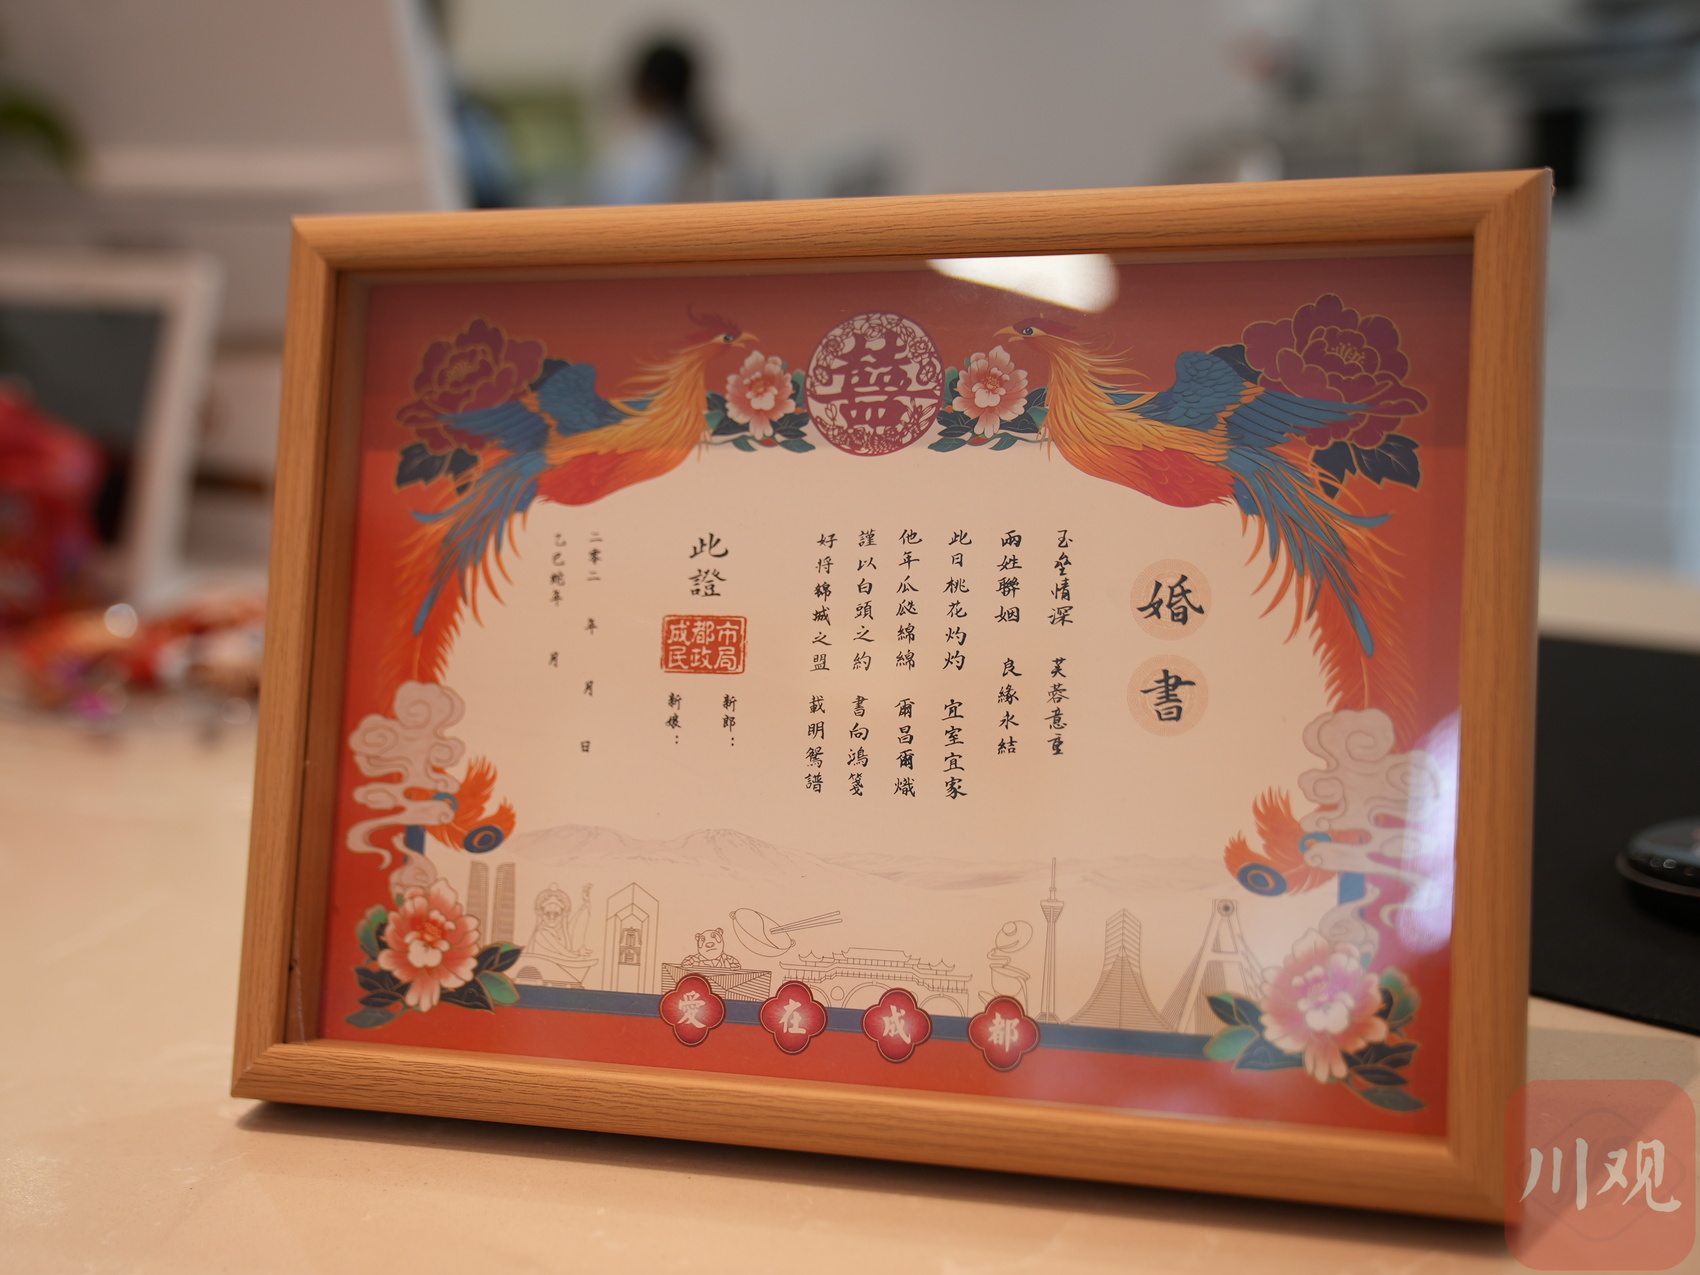 婚書
玉壘情深 芙蓉意重
兩姓聯姻 良緣永結
此日桃花灼灼 宜室宜家
他年瓜瓞綿綿 爾昌爾熾
謹以白頭之約 書向鴻箋
好將錦城之盟 載明鴛譜
新郎：
此證
成都市
民政局
新娘：
二零二 年 月 日
乙巳蛇年 月
愛在成都
川观